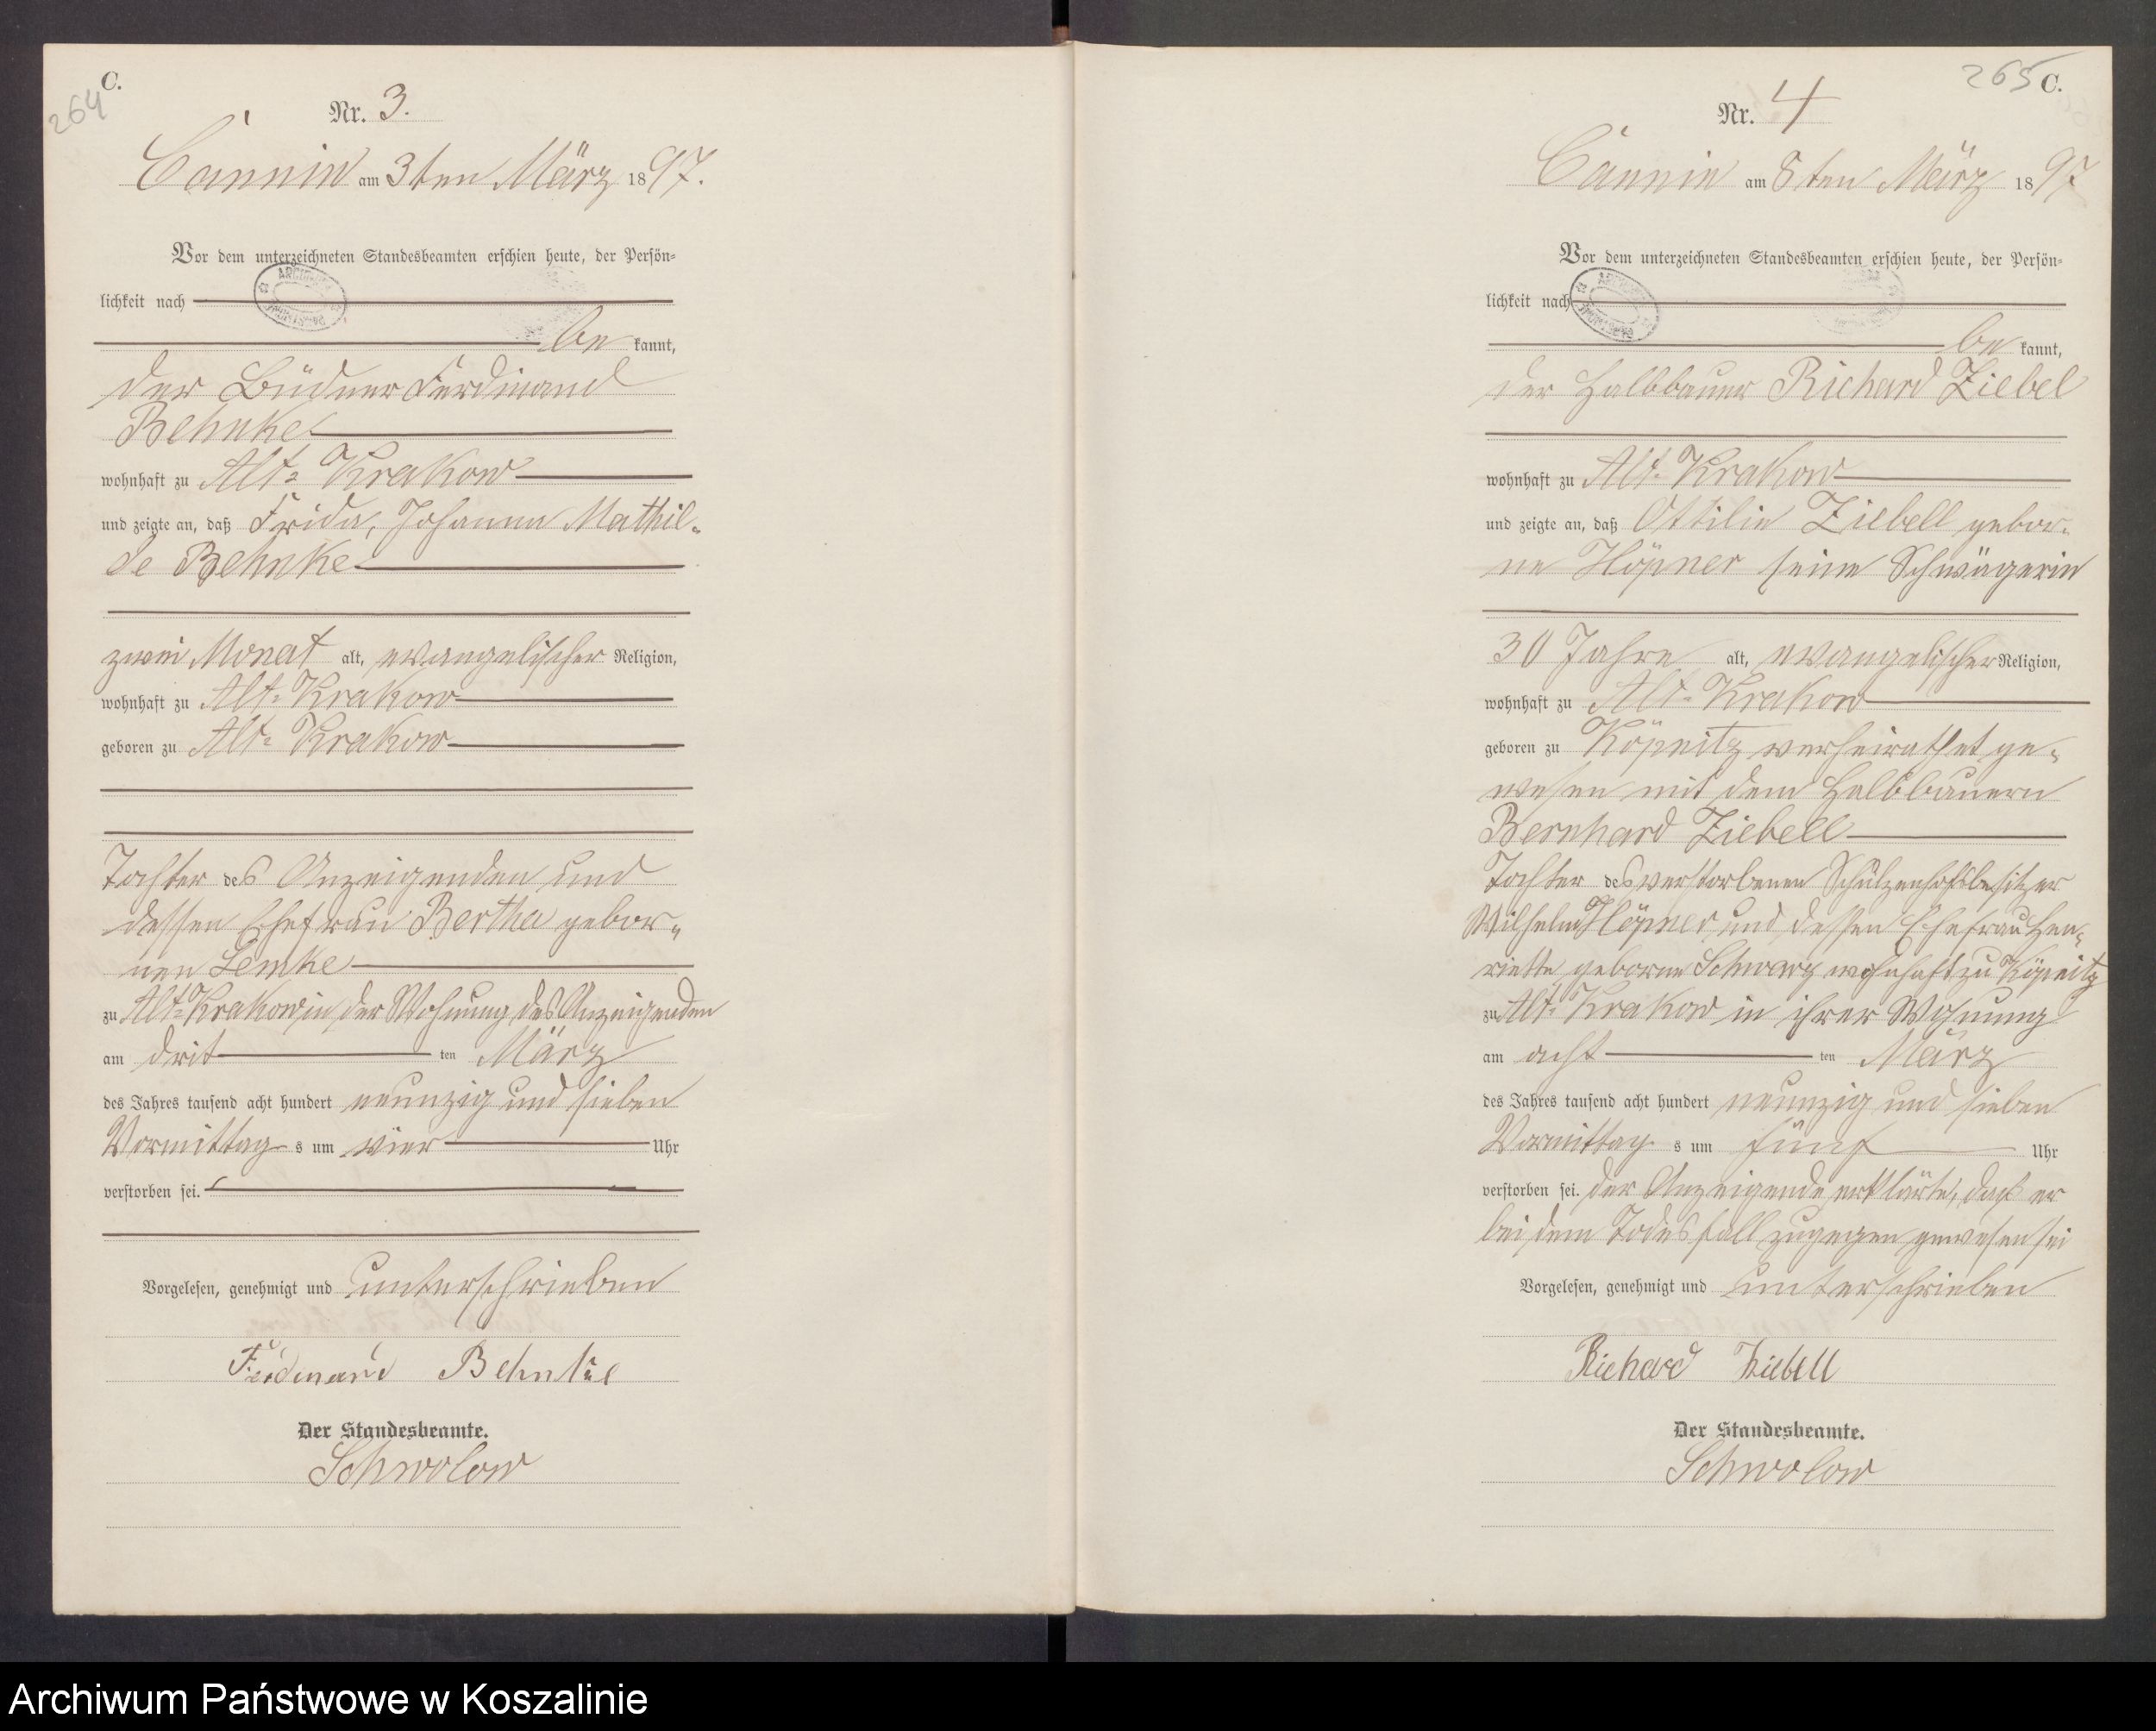 264
C.
Nr. 3.
Cannin am 3ten März 1897.
Vor dem unterzeichneten Standesbeamten erschien heute, der Persön=
lichkeit nach
be kannt,
der Büdner Ferdinand
Behnke
wohnhaft zu Alt= Krakow
und zeigte an, daß Frida, Johanne Mathil=
de Behnke
zwei Monat alt, evangelischer Religion,
wohnhaft zu Alt= Krakow
geboren zu Alt= Krakow
Tochter des Anzeigenden und
dessen Ehefrau Bertha gebor=
nen Lemke
zu Alt= Krakow in der Wohnung des Anzeigenden
am drit ten März
des Jahres tausend acht hundert neunzig und sieben
Vormittag s um vier Uhr
verstorben sei.
Vorgelesen, genehmigt und unterschrieben
Ferdinand Behnke
Der Standesbeamte.
Schwolow
265 C.
Nr. 4
Cannin am 8ten März 1897
Vor dem unterzeichneten Standesbeamten erschien heute, der Persön=
lichkeit nach
be kannt,
der Halbbauer Richard Ziebel
wohnhaft zu Alt= Krakow
und zeigte an, daß Ottilie Ziebell gebor=
ne Höpner seine Schwägerin
30 Jahre alt, evangelischer Religion,
wohnhaft zu Alt= Krakow
geboren zu Köpnitz verheirathet ge=
wesen mit dem Halbbauern
Bernhard Ziebell
Tochter des verstorbenen Schulzenhofsbesitzer
Wilhelm Höpner und dessen Ehefrau Hen=
riette geborne Schwarz wohnhaft zu Köpnitz
zu Alt= Krakow in ihrer Wohnung
am acht ten März
des Jahres tausend acht hundert neunzig und sieben
Vormittag s um fünf Uhr
verstorben sei. der Anzeigende erklärte, daß er
bei dem Todesfall zugegen gewesen sei
Vorgelesen, genehmigt und unterschrieben
Richard Ziebell
Der Standesbeamte.
Schwolow
Archiwum Państwowe w Koszalinie